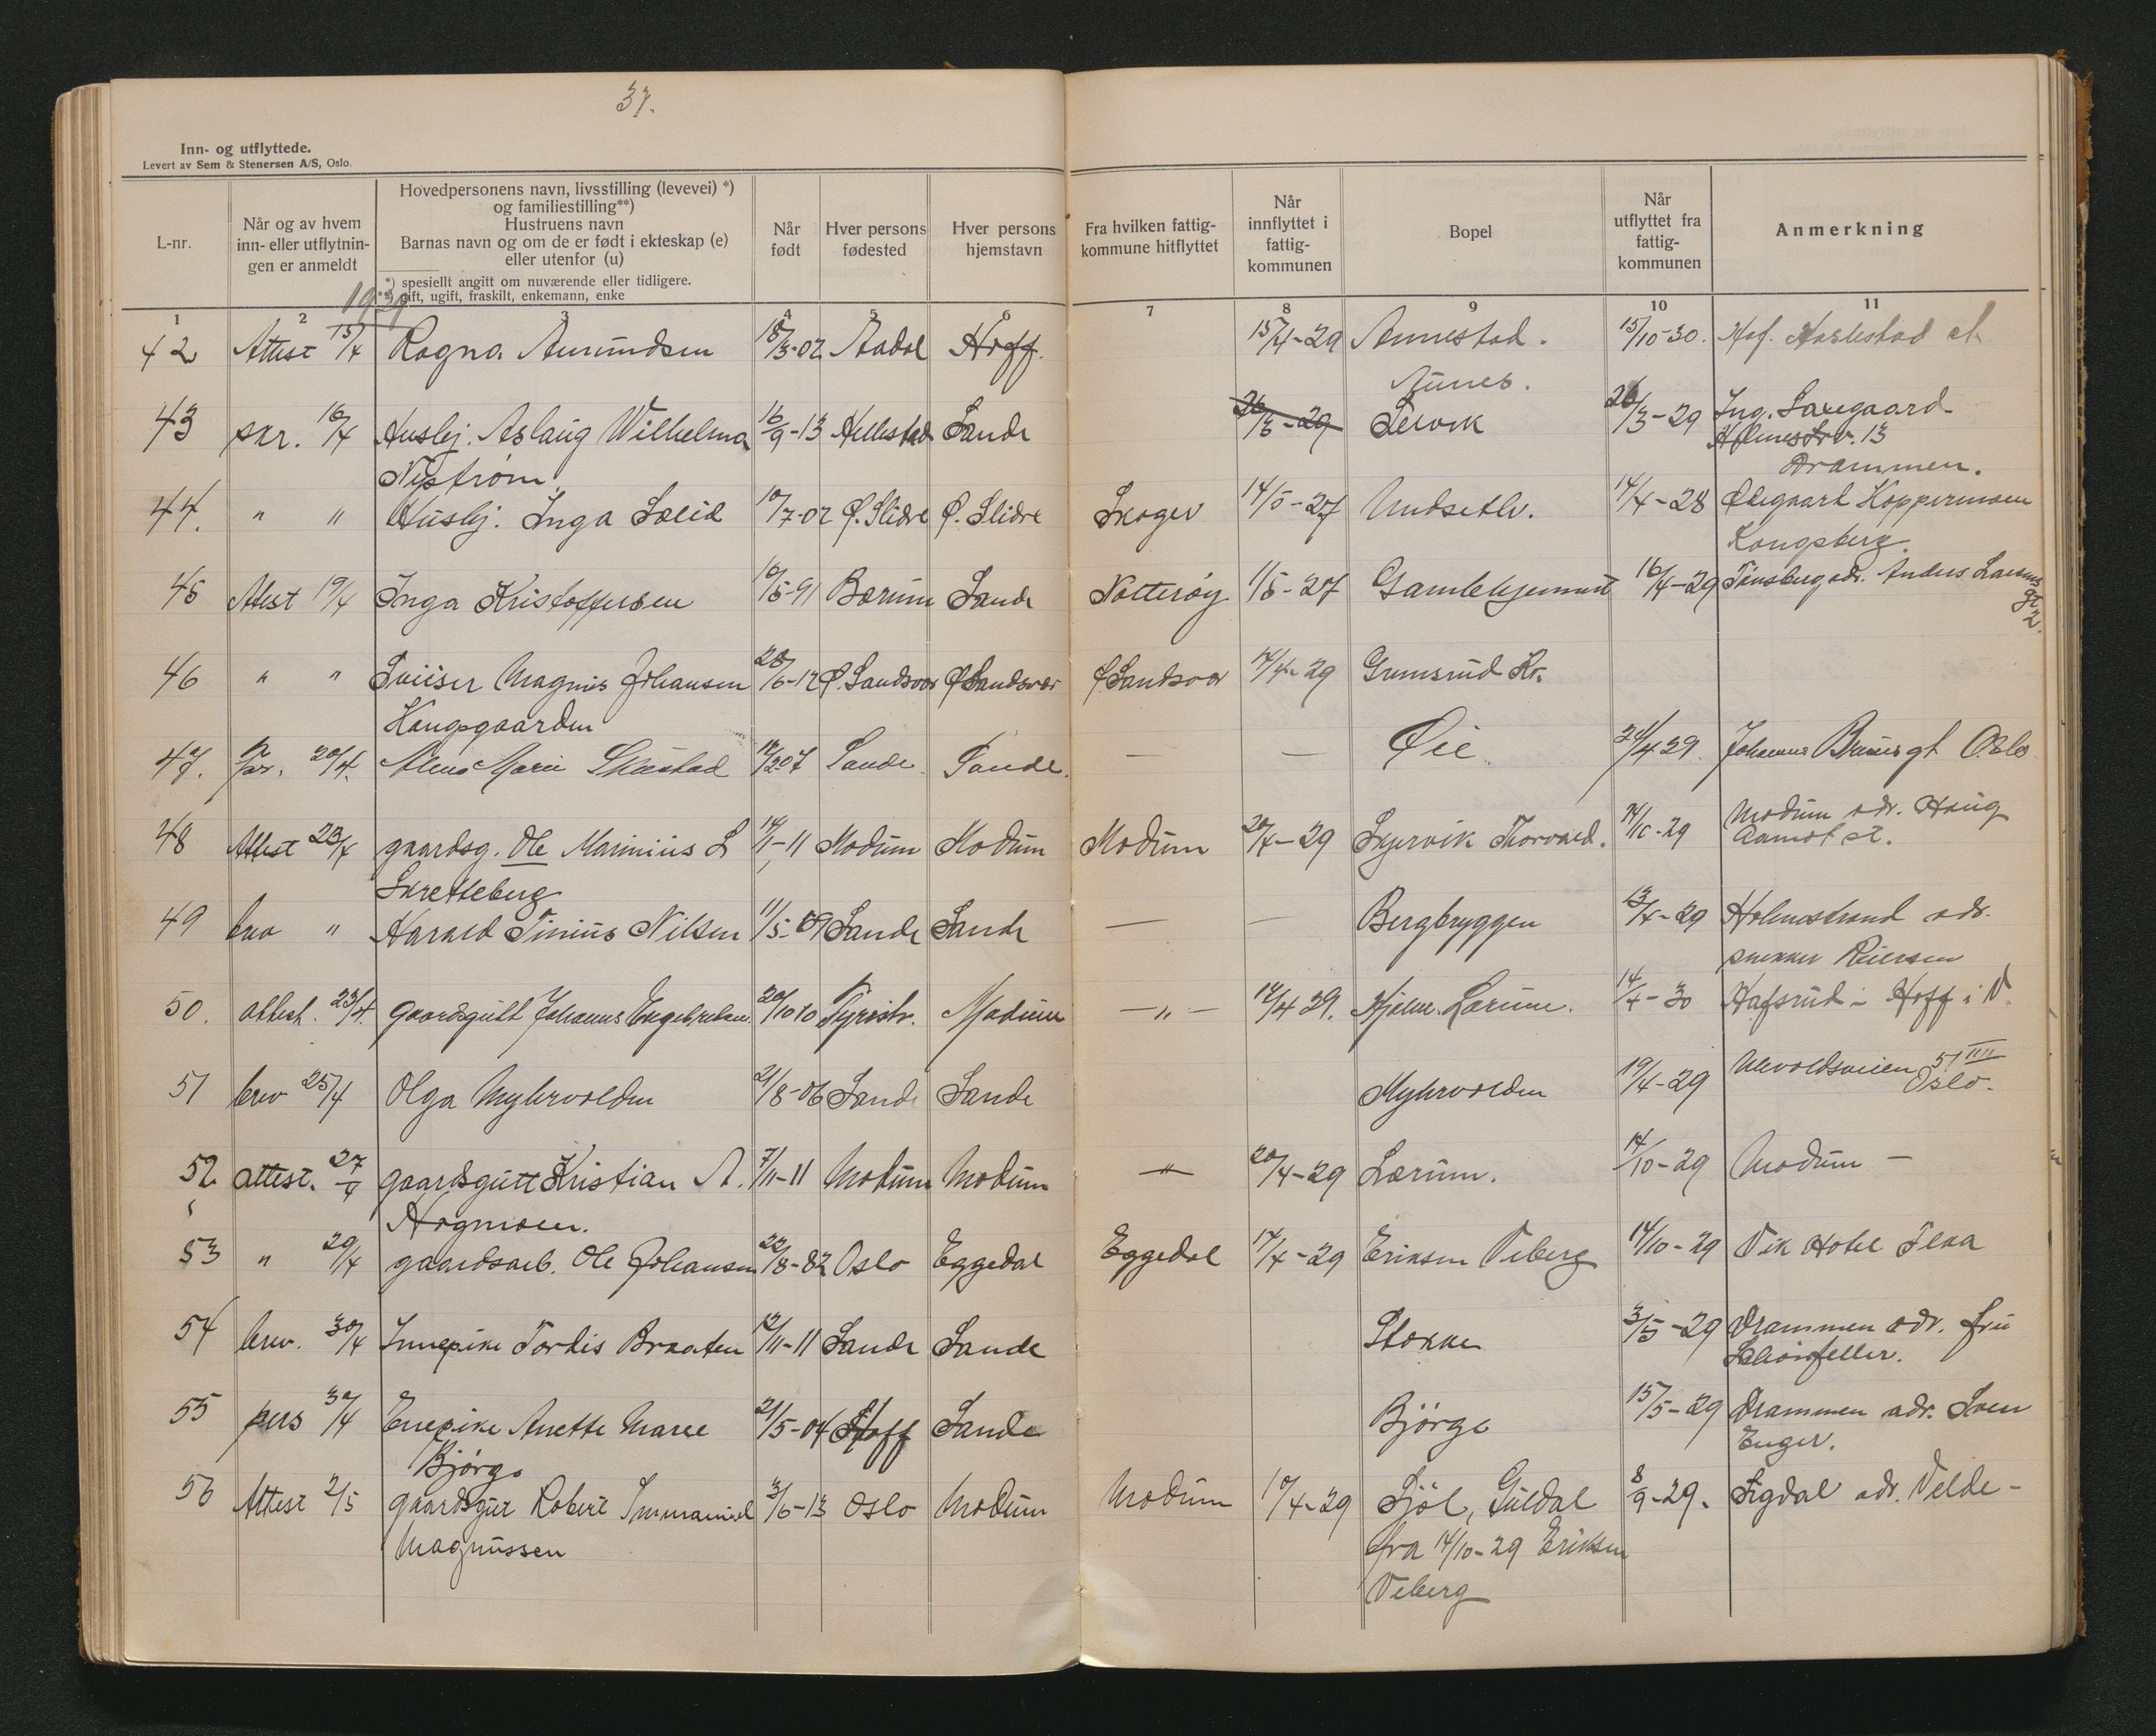 37.
Inn- og utflyttede.
Levert av Sem & Stenersen A/S, Oslo.
L-nr.
Når og av hvem
inn- eller utflytnin-
gen er anmeldt
Hovedpersonens navn, livsstilling (levevei) *)
og familiestilling**)
Hustruens navn
Barnas navn og om de er født i ekteskap (e)
eller utenfor (u)
*) spesiellt angitt om nuværende eller tidligere.
**) gift, ugift, fraskilt, enkemann, enke
Når
født
Hver persons
fødested
Hver persons
hjemstavn
Fra hvilken fattig-
kommune hitflyttet
Når
innflyttet i
fattig-
kommunen
Bopel
Når
utflyttet fra
fattig-
kommunen
Anmerkning
1 2 3 4 5 6 7 8 9 10 11
1929
42 Attest 15/4 Ragna Amundsen 18/3-02 Aadal Hoff. 15/4-29 Annestad. 15/10-30. Hof.
43 skr. 16/4 Huslj. Aslaug Wilhelma 16/9-13 Hillestad Sande 26/3-29 Lervik 26/3-29 Ing. Saxegaard
Nystrøm Holmestrv. 13
Drammen.
44. " " Huslj. Inga Solid 10/7-02 Ø. Slidre Ø. Slidre Skoger 14/5-27 14/4-28 Ødegaard Koppermoen
Kongsberg.
45 Attest 19/4 Inga Kristoffersen 10/5-91 Bærum Sande Nøtterøy 1/5-27 Gamlehjemmet 16/4-29 Tønsberg adr. Anders Larsens
gt 2.
46 " " Magnus Johansen 28/6-12 Ø. Sandsvær Ø Sandsvær Ø Sandsvær 14/4-29 Gumsrud Kr.
Kongsgaarden
47. 20/4. Marie Skæstad 12/07 Sande Sande. — — Øie 24/4 29. Johannes Brunsgt Oslo
48 Attest 23/4 gaardsg. Ole Marinius L 14/1-11 Modum Modum Modum 20/4-29 Skjervik Thorvald. 14/10-29 Modum adr. Haug
Skretteberg Aamot st.
49 brev " Harald Tinius Nilsen 11/5-09 Sande Sande — — Bergbryggen 13/4-29 Holmestrand adr.
snekker Reiersen
50. attest. 23/4. gaardsgutt Johannes Engebretsen 20/10 10 Tyristr. Modum — " — 14/4 29. Hjalm. Lærum. 14/4-30 Hafsrud - Hoff i V.
51 brev 25/4 Olga Myhrvolden 21/8-06 Sande Sande Myhrvolden 19/4-29 Ullevoldsveien 51 IIII
Oslo.
52 attest. 27/4 gaardsgutt Kristian A. 7/11-11 Modum Modum — " — 20/4-29 Lærum. 14/10-29 Modum —
Hogmoen.
53 " 29/4 gaardsarb. Ole Johansen 22/8-82 Oslo Eggedal Eggedal 14/4-29 Eriksen Veberg 14/10-29 Vik Hotel
54 brev. 30/4 Innepike Tordis Braaten 12/11-11 Sande Sande Stokke 3/5-29 Drammen adr. fru
55 pers 30/4 Enepike Anette Marie 21/5-04 Hoff Sande Bjørge 15/5-29 Drammen adr. Sven
Bjørge Enger.
56 Attest 2/5 gaardsgut Robert Immanuel 3/6-13 Oslo Modum Modum 10/4-29 Sjøl, Guldal 8/9-29. Sigdal adr. Velde-
Magnussen fra 14/10-29 Eriksen
Veberg